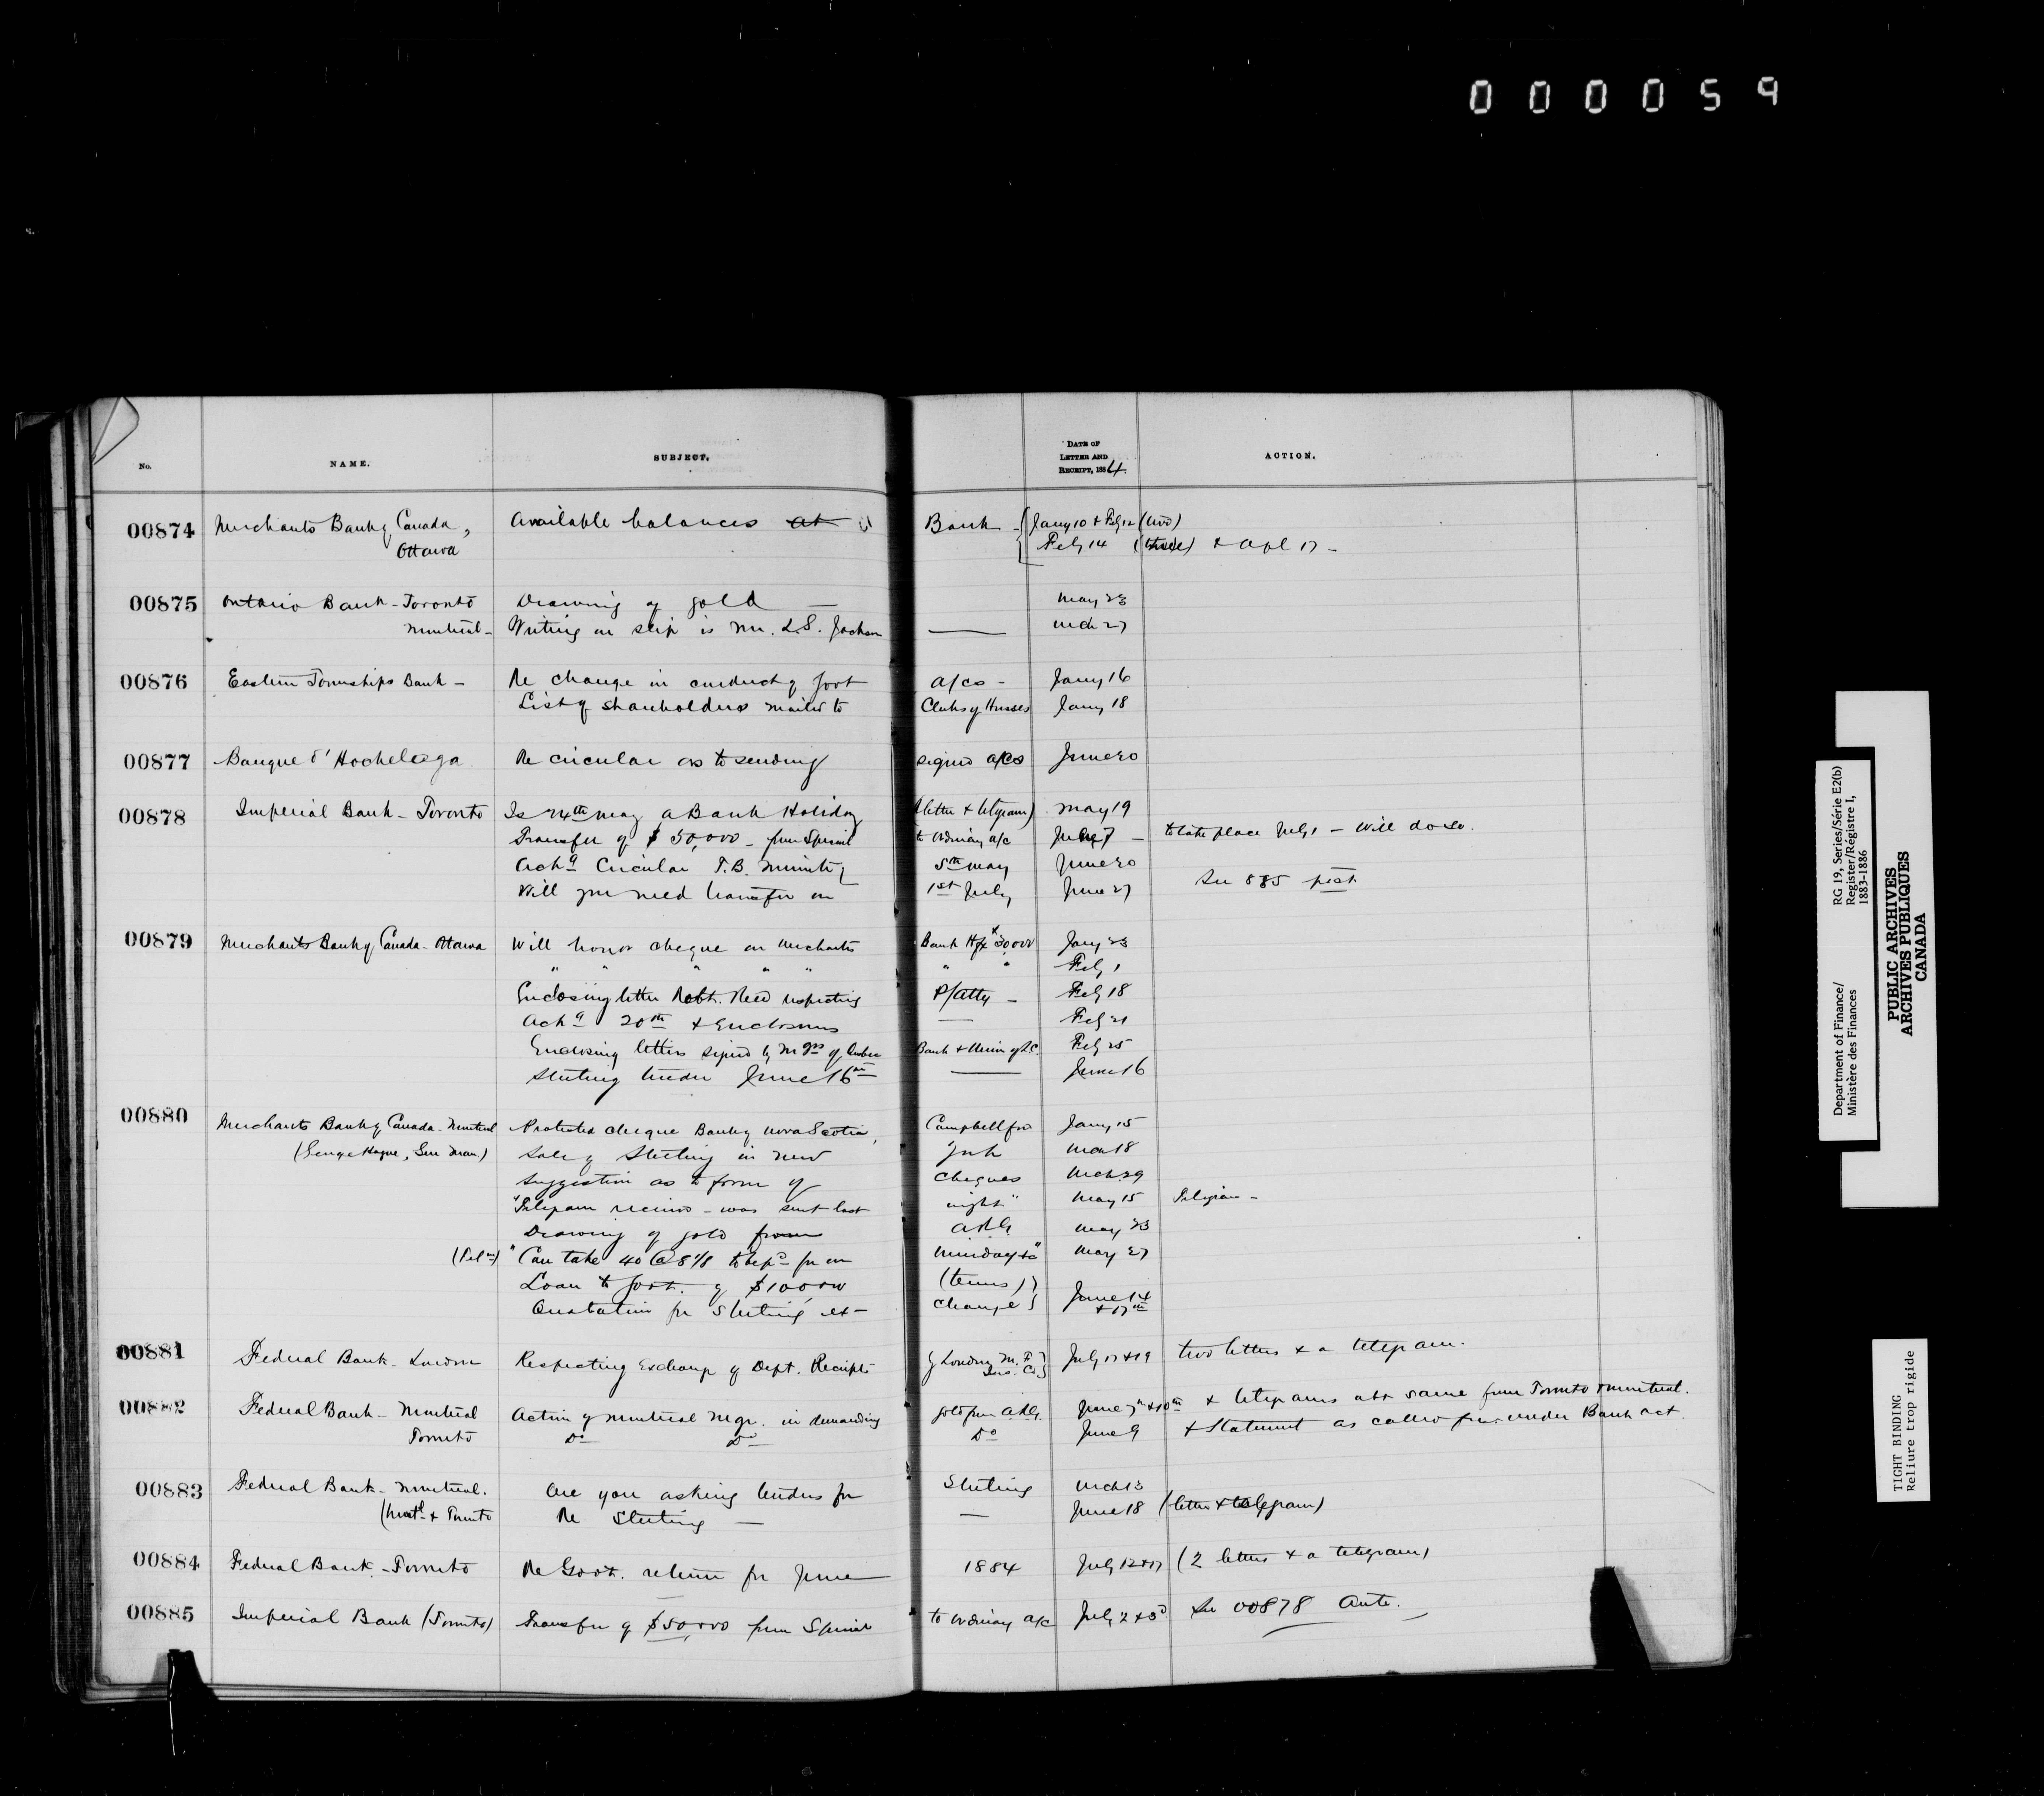 000059
No. NAME. SUBJECT. DATE OF LETTER AND RECEIPT, 1884. ACTION.
00874 Merchants Bank of Canada, Available balances at Bank - Jany 10 & Feby 12 (two)
Ottawa Feby 14 (three) & Apl 17 -
00875 Ontario Bank - Toronto Drawing of gold — May 23
Montreal - Writing on slip is Mr. L.S. Jackson — Mch 27
00876 Eastern Townships Bank - Re change in conduct of Govt a/cs - Jany 16
List of shareholders mailed to Clerks of Houses Jany 18
00877 Banque d'Hochelaga Re circular as to sending signed a/cs June 20
00878 Imperial Bank - Toronto Is 24th May a Bank Holiday (letter & telegram) May 19
Transfer of $50,000 - from Special to ordinary a/c July 7 - to take place July 1 - will do so.
Ackg Circular T.B. Minute of 5th May June 20
Will you need transfer on 1st July June 27 See 885 post
00879 Merchants Bank of Canada - Ottawa Will honor cheque on Merchants Bank Hfx $30,000 Jany 23
" " " " " " " Feby 1
Enclosing letter Robt. Reed respecting P/Atty - Feby 18
Ackg 20th & Enclosures — Feby 21
Enclosing letters signed by Mgrs of Quebec Bank & Union of L.C. Feby 25
Sterling tender June 16th — June 16
00880 Merchants Bank of Canada - Montreal Protested cheque Bank of Nova Scotia, Campbellford Jany 15
(George Hague, Gen Man.) Sale of Sterling in New York Mch 18
Suggestion as to form of cheques Mch 29
"Telegram received - was sent last night" May 15 Telegram -
Drawing of gold from A.R.G. May 23
(Telm) "Can take 40 @ 8 1/8 to depd for on Monday &c" May 27
Loan to Govt. of $100,000 (terms)
Quotation for Sterling ex- change June 14 & 17th
00881 Federal Bank - London Respecting Exchange of Dept. Receipts of London M. F. Ins. Co. July 17 & 19 two letters & a telegram.
00882 Federal Bank - Montreal Action of Montreal Mgr. in demanding gold from A.R.G. June 7th & 10th & telegrams abt same from Toronto & Montreal.
Toronto Do Do Do June 9 & Statement as called for under Bank Act.
00883 Federal Bank - Montreal. Are you asking tenders for Sterling Mch 13
(Montl. & Toronto Re Sterling — — June 18 (letter & telegram)
00884 Federal Bank - Toronto Re Govt. return for June 1884 July 12 & 17 (2 letters & a telegram)
00885 Imperial Bank (Toronto) Transfer of $50,000 from Special to ordinary a/c July 2 & 3d See 00878 Ante.
Department of Finance/ RG 19, Series/Série E2(b)
Ministère des Finances Register/Régistre I,
1883-1886
PUBLIC ARCHIVES
ARCHIVES PUBLIQUES
CANADA
TIGHT BINDING
Reliure trop rigide